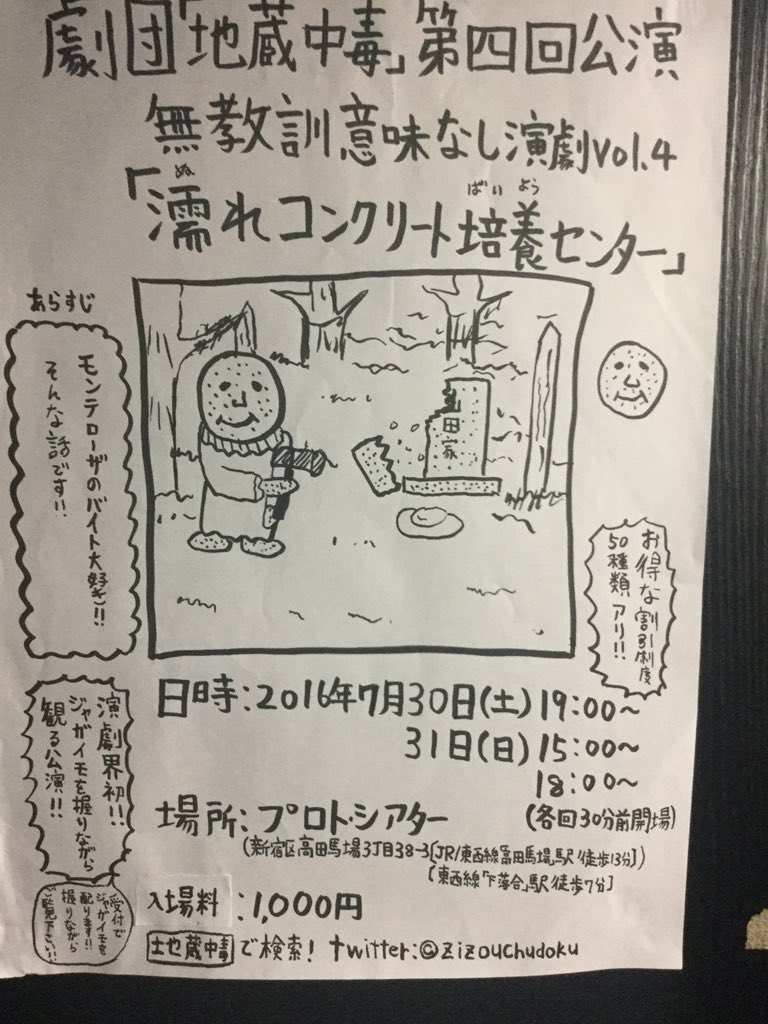 劇団「地蔵中毒」第四回公演
無教訓意味なし演劇vol.4
ぬ
ばい よう
「濡れコンクリート培養センター」
あらすじ
モンテローザのバイト大好き!!
そんな話です!!
田家
お得な割引制度
50種類アリ!!
演劇界初!!
ジャガイモを握りながら
観る公演!!
受付で
ジャガイモを
配ります!!
握りながら
ご覧下さい!!
日時:2016年7月30日(土)19:00〜
31日(日)15:00〜
18:00〜
(各回30分前開場)
場所:プロト・シアター
(新宿区高田馬場3丁目38-3[JR/東西線「高田馬場」駅/徒歩13分])
[東西線「下落合」駅/徒歩7分]
入場料:1,000円
地蔵中毒で検索! twitter:@zizouchudoku